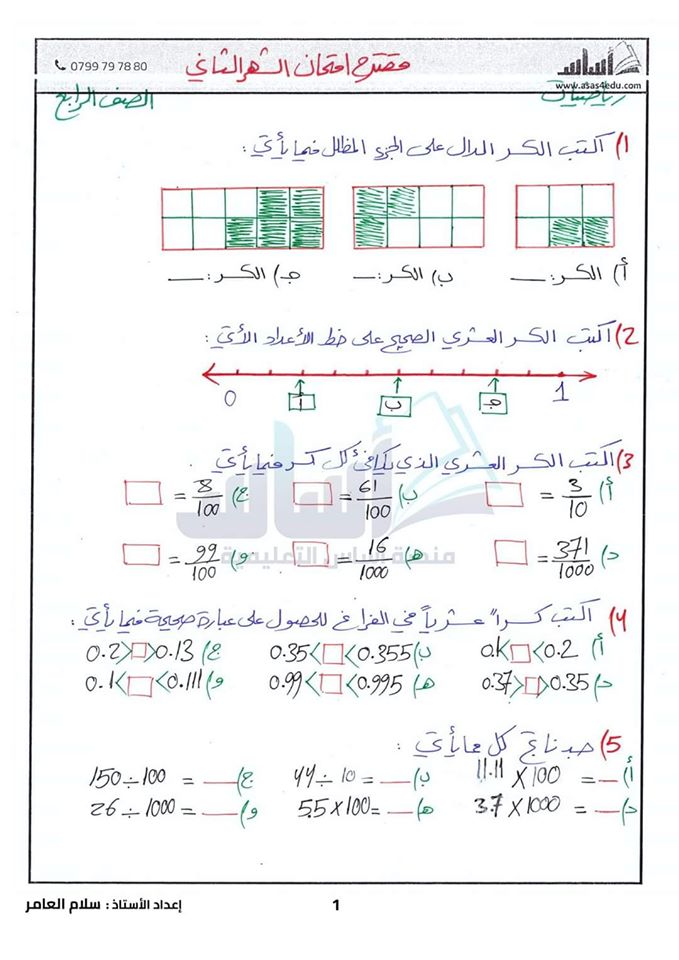 أساس
www.asas4edu.com
مقترح امتحان الشهر الثاني
0799 79 78 80
رياضيات
الصف الرابع
1) اكتب الكسر الدال على الجزء المظلل فيما يأتي :
أ) الكسر: __ ب) الكسر: __ جـ) الكسر: __
2) اكتب الكسر العشري الصحيح على خط الأعداد الآتي :
0 أ ب جـ 1
3) اكتب الكسر العشري الذي يكافئ كل كسر فيما يأتي
أ) 3/10 = ب) 61/100 = ج) 8/100 =
د) 371/1000 = هـ) 16/1000 = و) 99/100 =
أساس
منصة أساس التعليمية
4) اكتب كسراً عشرياً في الفراغ للحصول على عبارة صحيحة فيما يأتي :
أ) 0.1< □ <0.2 ب) 0.35< □ <0.355 ج) 0.2> □ >0.13
د) 0.37> □ >0.35 هـ) 0.99< □ <0.995 و) 0.1< □ <0.111
5) جد ناتج كل مما يأتي :
أ) 11.11 × 100 = __ ب) 44 ÷ 10 = __ ج) 150 ÷ 100 = __
د) 3.7 × 1000 = __ هـ) 5.5 × 100 = __ و) 26 ÷ 1000 = __
إعداد الأستاذ : سلام العامر
1